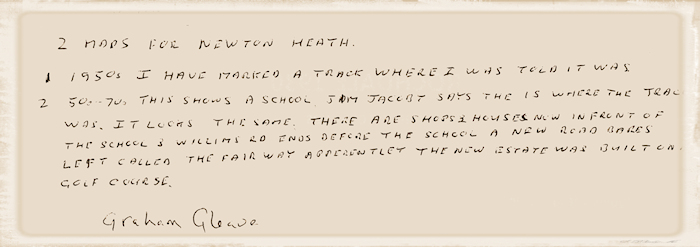 2 MAPS FOR NEWTON HEATH.
1 1950s I HAVE MARKED A TRACK WHERE I WAS TOLD IT WAS
2 50s-70s THIS SHOWS A SCHOOL JIM JACOBY SAYS THE IS WHERE THE TRAC
WAS. IT LOOKS THE SAME. THERE ARE SHOPS & HOUSES NOW IN FRONT OF
THE SCHOOL & WILLIMS RD ENDS BEFORE THE SCHOOL A NEW ROAD BARES
LEFT CALLED THE FAIRWAY APPERENTLEY THE NEW ESTATE WAS BUILT ON
GOLF COURSE.
Graham Gleave